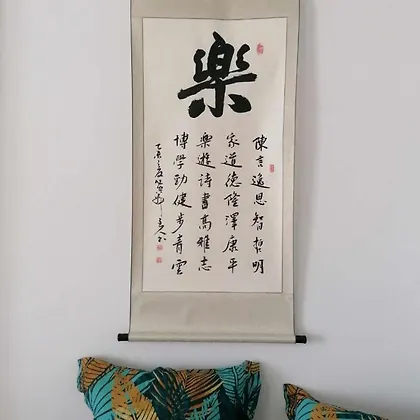 樂
陳言逸思智哲明
家道德隆澤康平
樂遊詩書高雅志
博學勁健步青雲